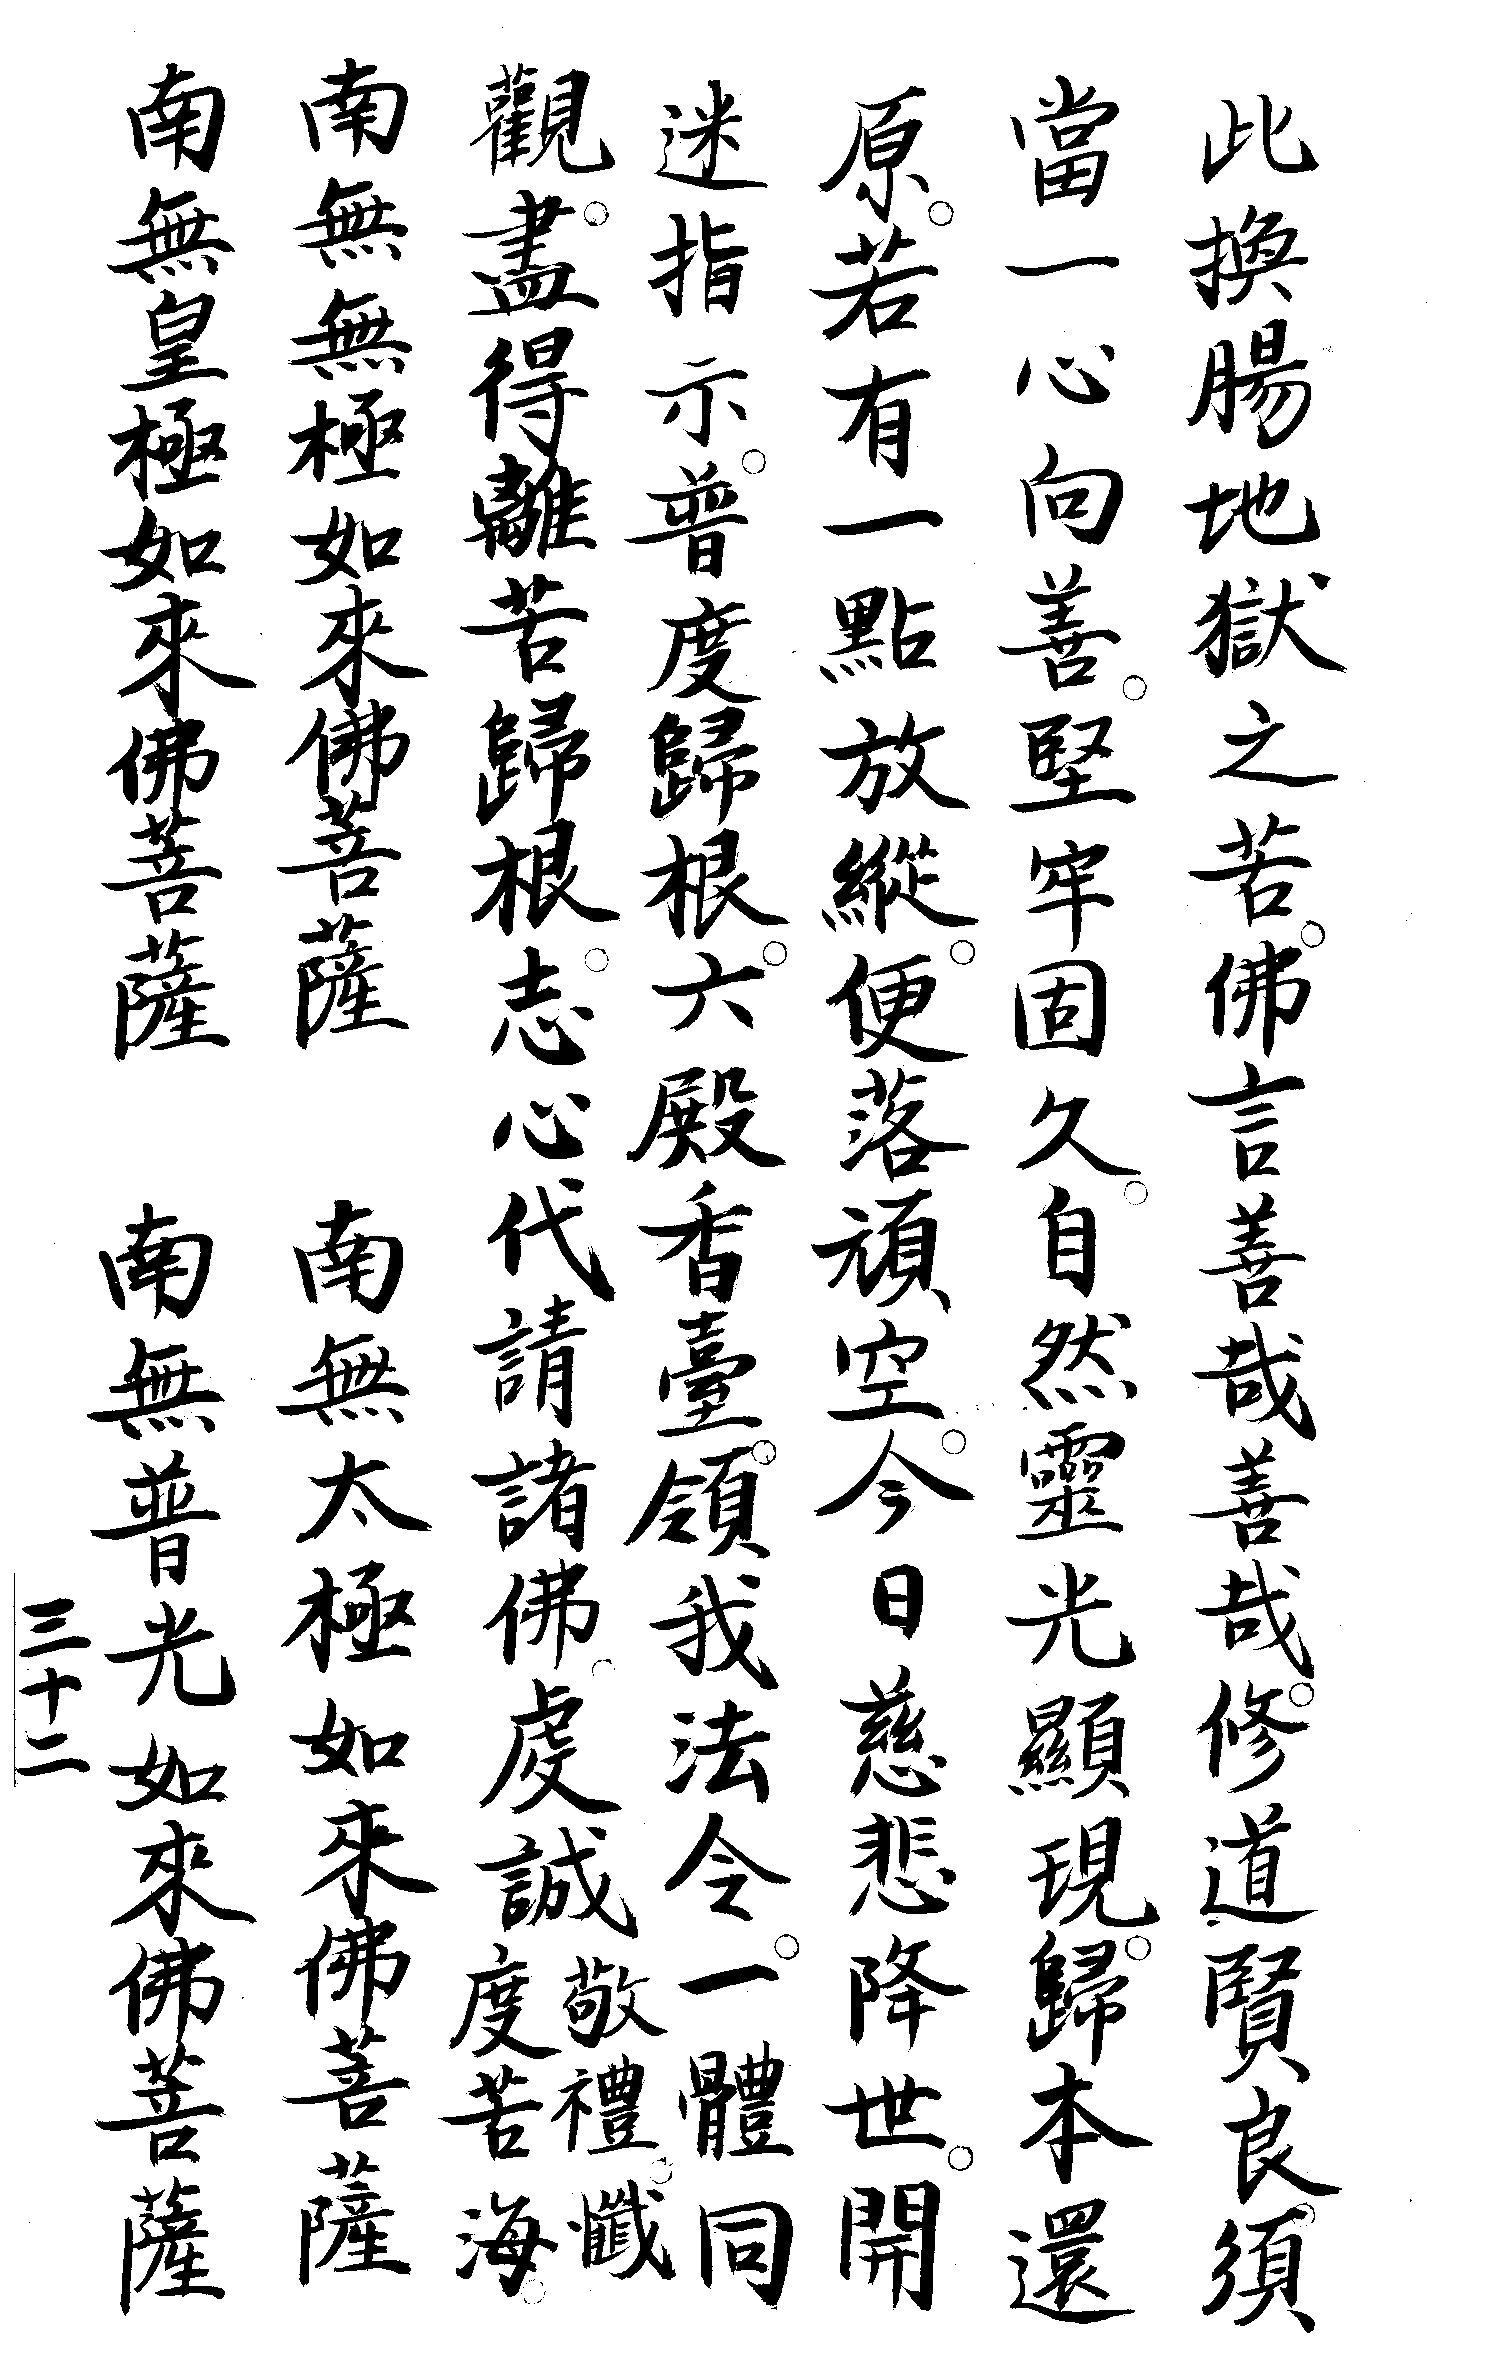 此換腸地獄之苦。佛言善哉善哉。修道賢良。須
當一心向善。堅牢固久。自然靈光顯現。歸本還
原。若有一點放縱。便落頑空。今日慈悲降世。開
迷指示。普度歸根。六殿香臺。領我法令。一體同
觀。盡得離苦歸根。志心代請諸佛。虔誠敬禮。懺度苦海。
南無無極如來佛菩薩　南無太極如來佛菩薩
南無皇極如來佛菩薩　南無普光如來佛菩薩
三十二